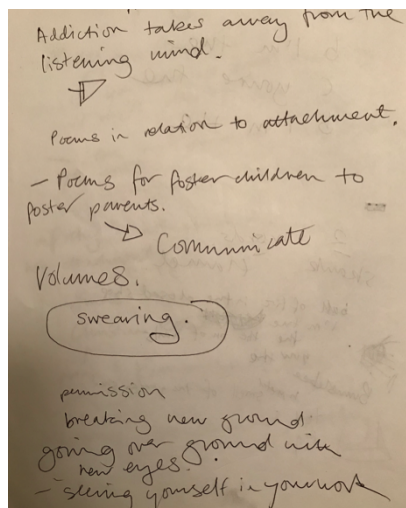 Addiction takes away from the
listening mind.
Poems in relation to attachment.
- Poems for foster children to
foster parents.
Communicate
Volumes.
swearing.
permission
breaking new ground.
going over ground with
new eyes.
- seeing yourself in your work